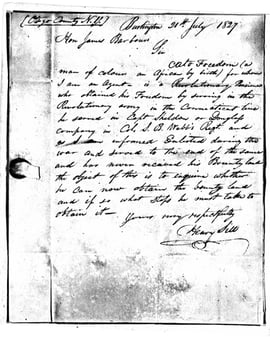 (Otsego County N.Y.)
Burlington 21st July 1827
Hon James Barbour
Sir
Cato Freedom (a
man of colour an African by birth) for whom
I am an Agent is a Revolutionary Pensioner
who obtained his Freedom by serving in the
Revolutionary army in the Connecticut line
he served in Capt or Douglass
company in Col. S. B. Webb's Regt. and
as I am informed Enlisted during the
war and served to the end of the same
and has never received his Bounty land
the object of this is to enquire whether
he can now obtain the bounty land
and if so what steps he must take to
obtain it—
Yours very respectfully
Henry